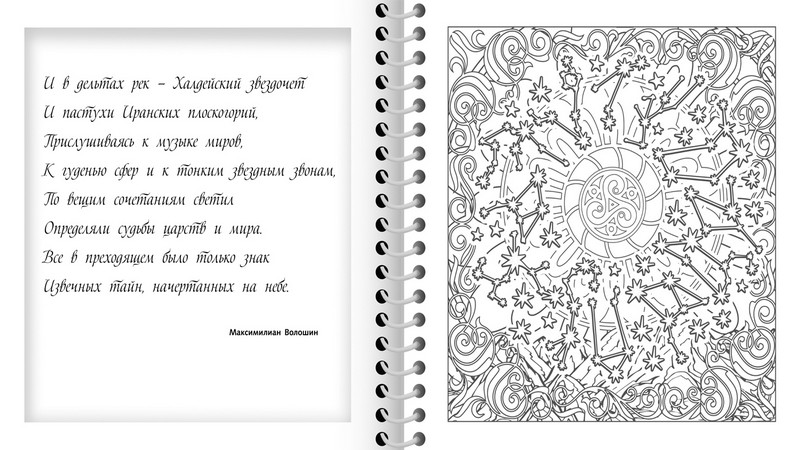 И в дельтах рек – Халдейский звездочет
И пастухи Иранских плоскогорий,
Прислушиваясь к музыке миров,
К гуденью сфер и к тонким звездным звонам,
По вещим сочетаниям светил
Определяли судьбы царств и мира.
Все в преходящем было только знак
Извечных тайн, начертанных на небе.
Максимилиан Волошин